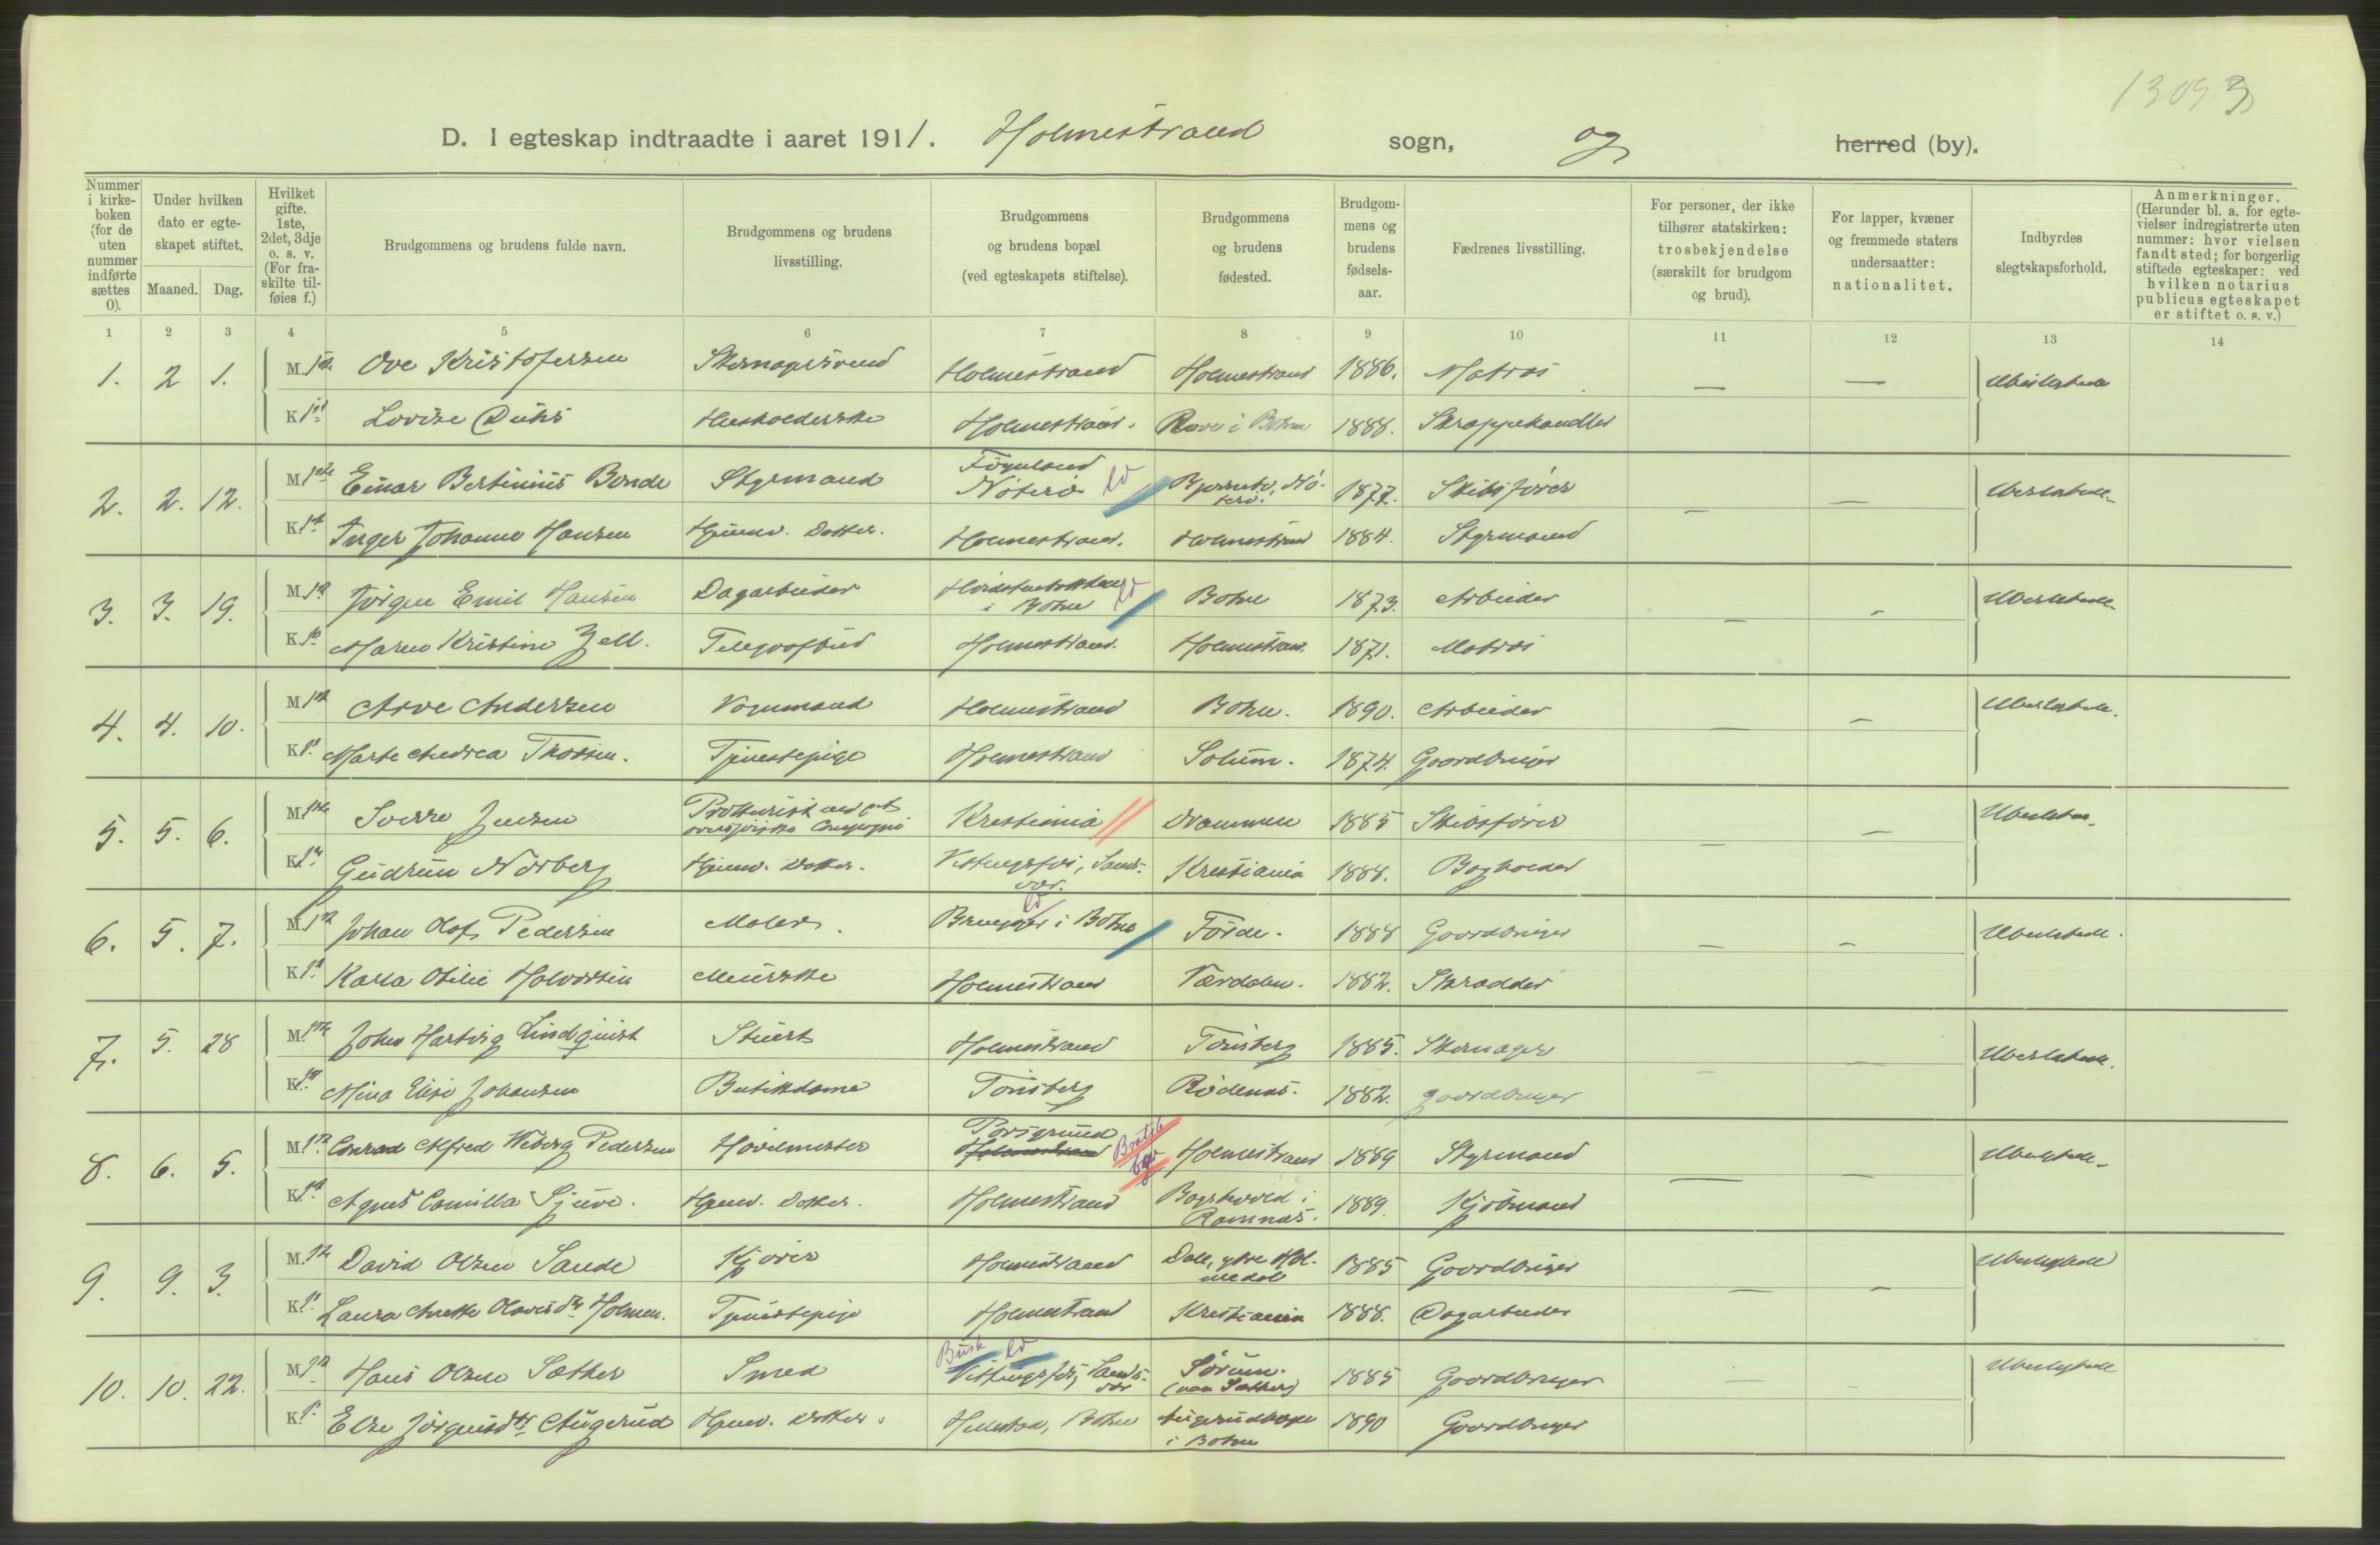 13093
D. I egteskap indtraadte i aaret 1911. Holmestrand sogn, og herred (by).
Nummer i kirkeboken (for de uten nummer indførte sættes 0).
Under hvilken dato er egteskapet stiftet.
Maaned. Dag.
Hvilket gifte. 1ste, 2det, 3dje o. s. v. (For fraskilte tilføies f.)
Brudgommens og brudens fulde navn.
Brudgommens og brudens livsstilling.
Brudgommens og brudens bopæl (ved egteskapets stiftelse).
Brudgommens og brudens fødested.
Brudgommens og brudens fødselsaar.
Fædrenes livsstilling.
For personer, der ikke tilhører statskirken: trosbekjendelse (særskilt for brudgom og brud).
For lapper, kvæner og fremmede staters undersaatter: nationalitet.
Indbyrdes slegtskapsforhold.
Anmerkninger. (Herunder bl. a. for egtevielser indregistrerte uten nummer: hvor vielsen fandt sted; for borgerlig stiftede egteskaper: ved hvilken notarius publicus egteskapet er stiftet o. s. v.)
1 2 3 4 5 6 7 8 9 10 11 12 13 14
1. 2 1. M. 1ste Ove Kristofersen Skomagersvend Holmestrand Holmestrand 1886. Matros — — Ubeslektede
K 1ste Lovise Dühs Husholderske Holmestrand. Rove i Botne 1888. Skrappehandler
2. 2. 12. M 1ste Einar Bertinius Bonde Styrmand Föynland Nöterö ld Nöterö. 1877. Skibsfører — — Ubeslektede
K 1ste Inger Johanne Hansen Hjemv. Datter. Holmestrand. Holmestrand 1884. Styrmand
3. 3. 19. M 1ste Jörgen Emil Hansen Dagarbeider i Botne ld Botne 1873. Arbeider — — Ubeslektede
K 1ste Maren Kristine Zell. Telegrafbud Holmestrand. Holmestrand. 1871. Matros
4. 4. 10. M 1ste Arve Andersen Vognmand Holmestrand Botne. 1890. Arbeider — — Ubeslektede.
K 1ste Marte Andrea Thorsen. Tjenestepige Holmestrand Solum. 1874. Gaardbruger
5. 5. 6. M 1ste Sverre Jensen Prokurist ved det oversjöiske Compagni Kristiania Drammen 1885 Skibsfører — — Ubeslektet
K 1ste Gudrun Norberg Hjemv. Datter. Vittingsfos, Sandsvær. Kristiania 1888. Bogholder
6. 5. 7. M 1ste Johan Olaf Pedersen Maler. i Botne ld Förde. 1888 Gaardbruger — — Ubeslektede.
K 1ste Karla Otilie Halvorsen Meierske Holmestrand Værdalen. 1882. Skrædder
7. 5. 28 M. 1ste John Hartvig Lindquist Stuert Holmestrand Tönsberg 1885. Skomager — — Ubeslektede.
K 1ste Mina Elise Johansen Butikdame Tönsberg Rödenes. 1882. Gaardbruger
8. 6. 5. M 1ste Conrad Alfred Wiborg Pedersen Hovmester Porsgrund Holmestrand Bratsb by Holmestrand 1889 Styrmand — — Ubeslektede
K 1ste Agnes Camilla Sjuve. Hjemv. Datter. Holmestrand i Ramnæs. 1889. Kjöbmand
9. 9. 3. M. 1ste David Olsen Sande Kjører Holmestrand Dale, ytre Holmedal 1885 Gaardbruger — — Ubeslektede
K 1ste Laura Anette Olavesdtr Holmen. Tjenestepige Holmestrand Kristiania 1888. Dagarbeider
10. 10. 22. M 1ste Hans Olsen Sæther Smed Busk ld Vittingsfos, Sandsvær Sörum. (nær Sæther) 1885 Gaardbruger — — Ubeslektede
K 1ste Else Jörgensdtr Augerud Hjemv. Datter. Hillestad, Botne i Botne 1890 Gaardbruger